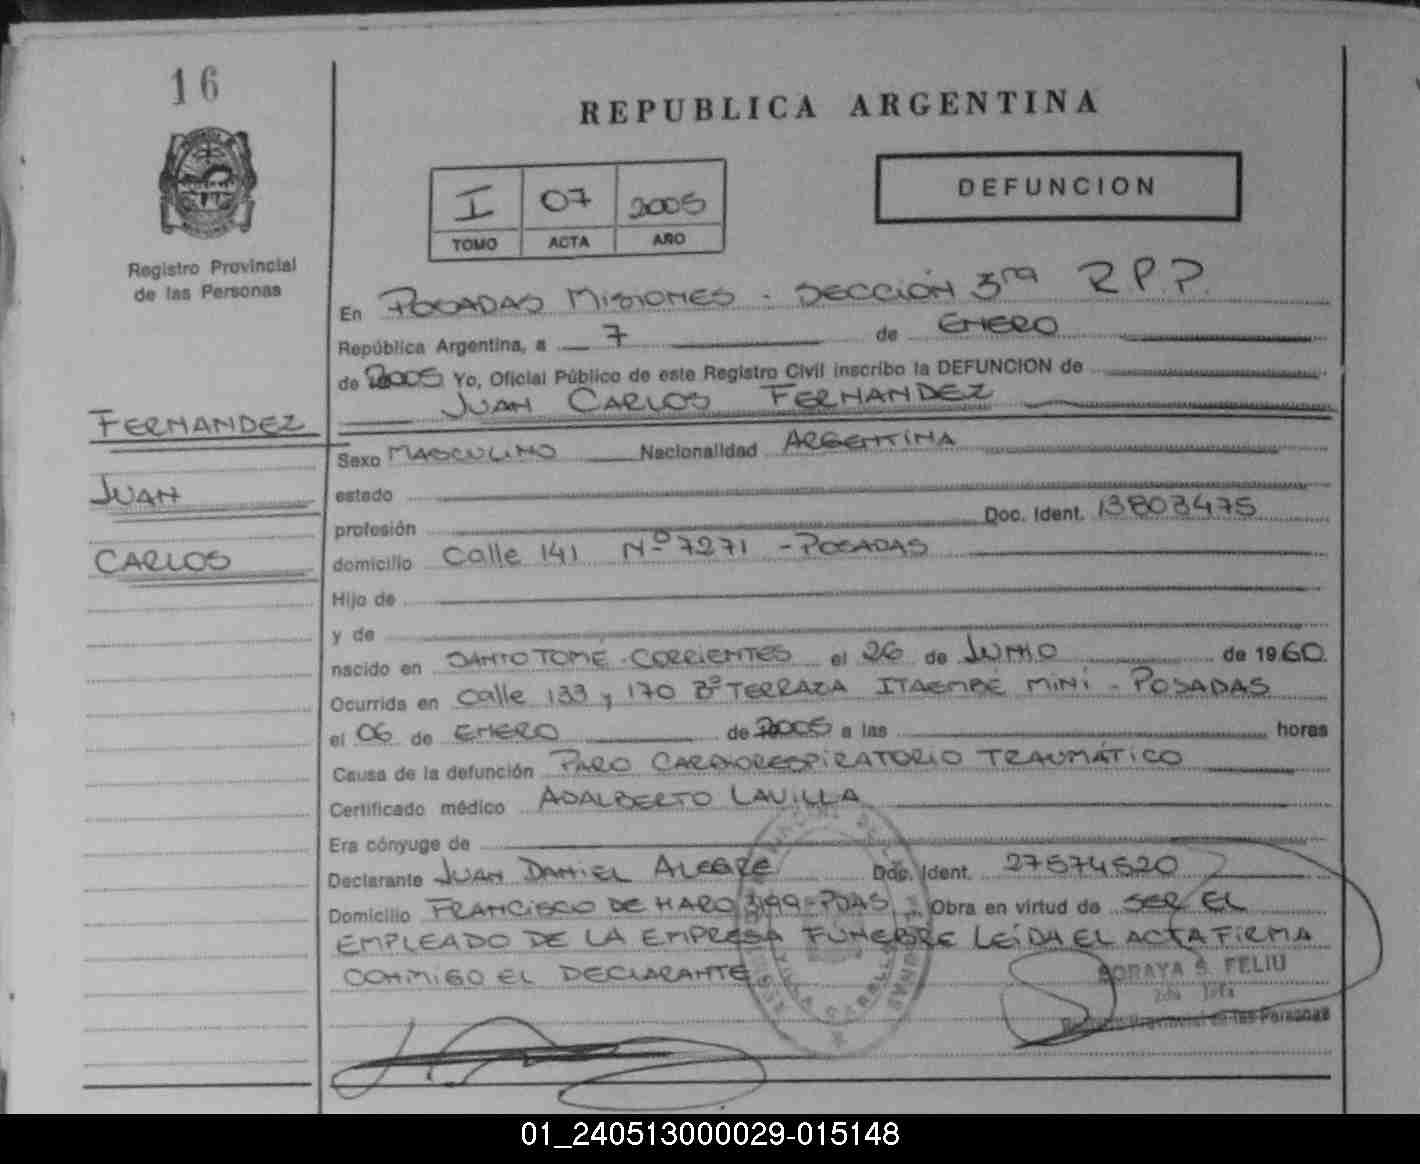 16
REPUBLICA ARGENTINA
DEFUNCION
I 07 2005
TOMO ACTA AÑO
Registro Provincial
de las Personas
En POSADAS MISIONES - SECCIÓN 3ra R.P.P.
República Argentina, a 7 de ENERO
de 2005 Yo, Oficial Público de este Registro Civil inscribo la DEFUNCION de
JUAN CARLOS FERNANDEZ
FERNANDEZ
JUAN
CARLOS
Sexo MASCULINO Nacionalidad ARGENTINA
estado
profesión Doc. Ident. 13803475
domicilio Calle 141 Nº 7271 - POSADAS
Hijo de
y de
nacido en SANTO TOMÉ - CORRIENTES el 26 de JUNIO de 1960.
Ocurrida en Calle 133 y 170 3ª TERRAZA ITAEMBE MINI - POSADAS
el 06 de ENERO de 2005 a las horas
Causa de la defunción PARO CARDIORESPIRATORIO TRAUMÁTICO
Certificado médico ADALBERTO LAVILLA
Era cónyuge de
Declarante JUAN DANIEL ALEGRE Doc. Ident. 27574520
Domicilio FRANCISCO DE HARO 3199-PDAS Obra en virtud de SER EL
EMPLEADO DE LA EMPRESA FUNEBRE LEÍDA EL ACTA FIRMA
CONMIGO EL DECLARANTE
SORAYA S. FELIU
Registro Provincial de las Personas
01_240513000029-015148